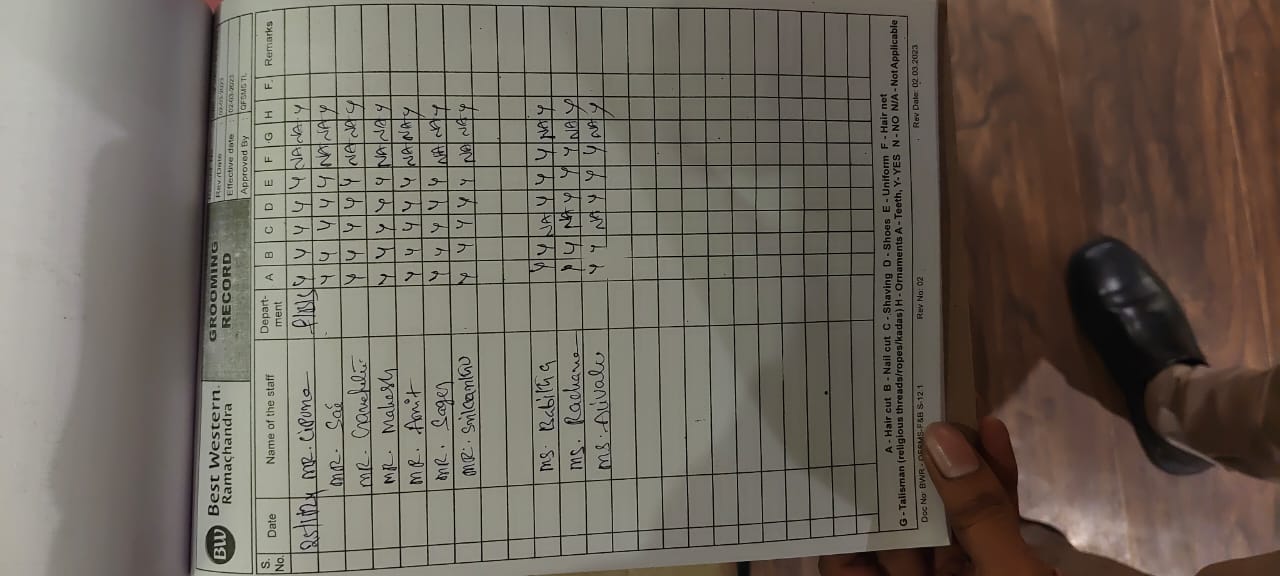 BW Best Western.
Ramachandra
GROOMING
RECORD
Rev./Date 02-03-2023
Effective date 02-03-2023
Approved By QFSMS TL
S. No. Date Name of the staff Depart-ment A B C D E F G H F. Remarks
MR. Y Y Y Y Y NA NA Y
MR. Sai Y Y Y Y Y NA NA Y
MR. Y Y Y Y Y NA NA Y
MR. Mahesh Y Y Y Y Y NA NA Y
MR. Amit Y Y Y Y Y NA NA Y
MR. Sagar Y Y Y Y Y NA NA Y
MR. Y Y Y Y Y NA NA Y
MS. Babitha Y Y NA Y Y Y NA Y
MS. Rachana Y Y NA Y Y Y NA Y
MS. Y Y NA Y Y Y NA Y
A - Hair cut B - Nail cut C - Shaving D - Shoes E - Uniform F - Hair net
G - Talisman (religious threads/ropes/kadas) H - Ornaments A - Teeth, Y- YES N - NO N/A - Not Applicable
Doc No: BWR - QFSMS-F&B S-12 1 Rev No: 02 Rev Date: 02.03.2023